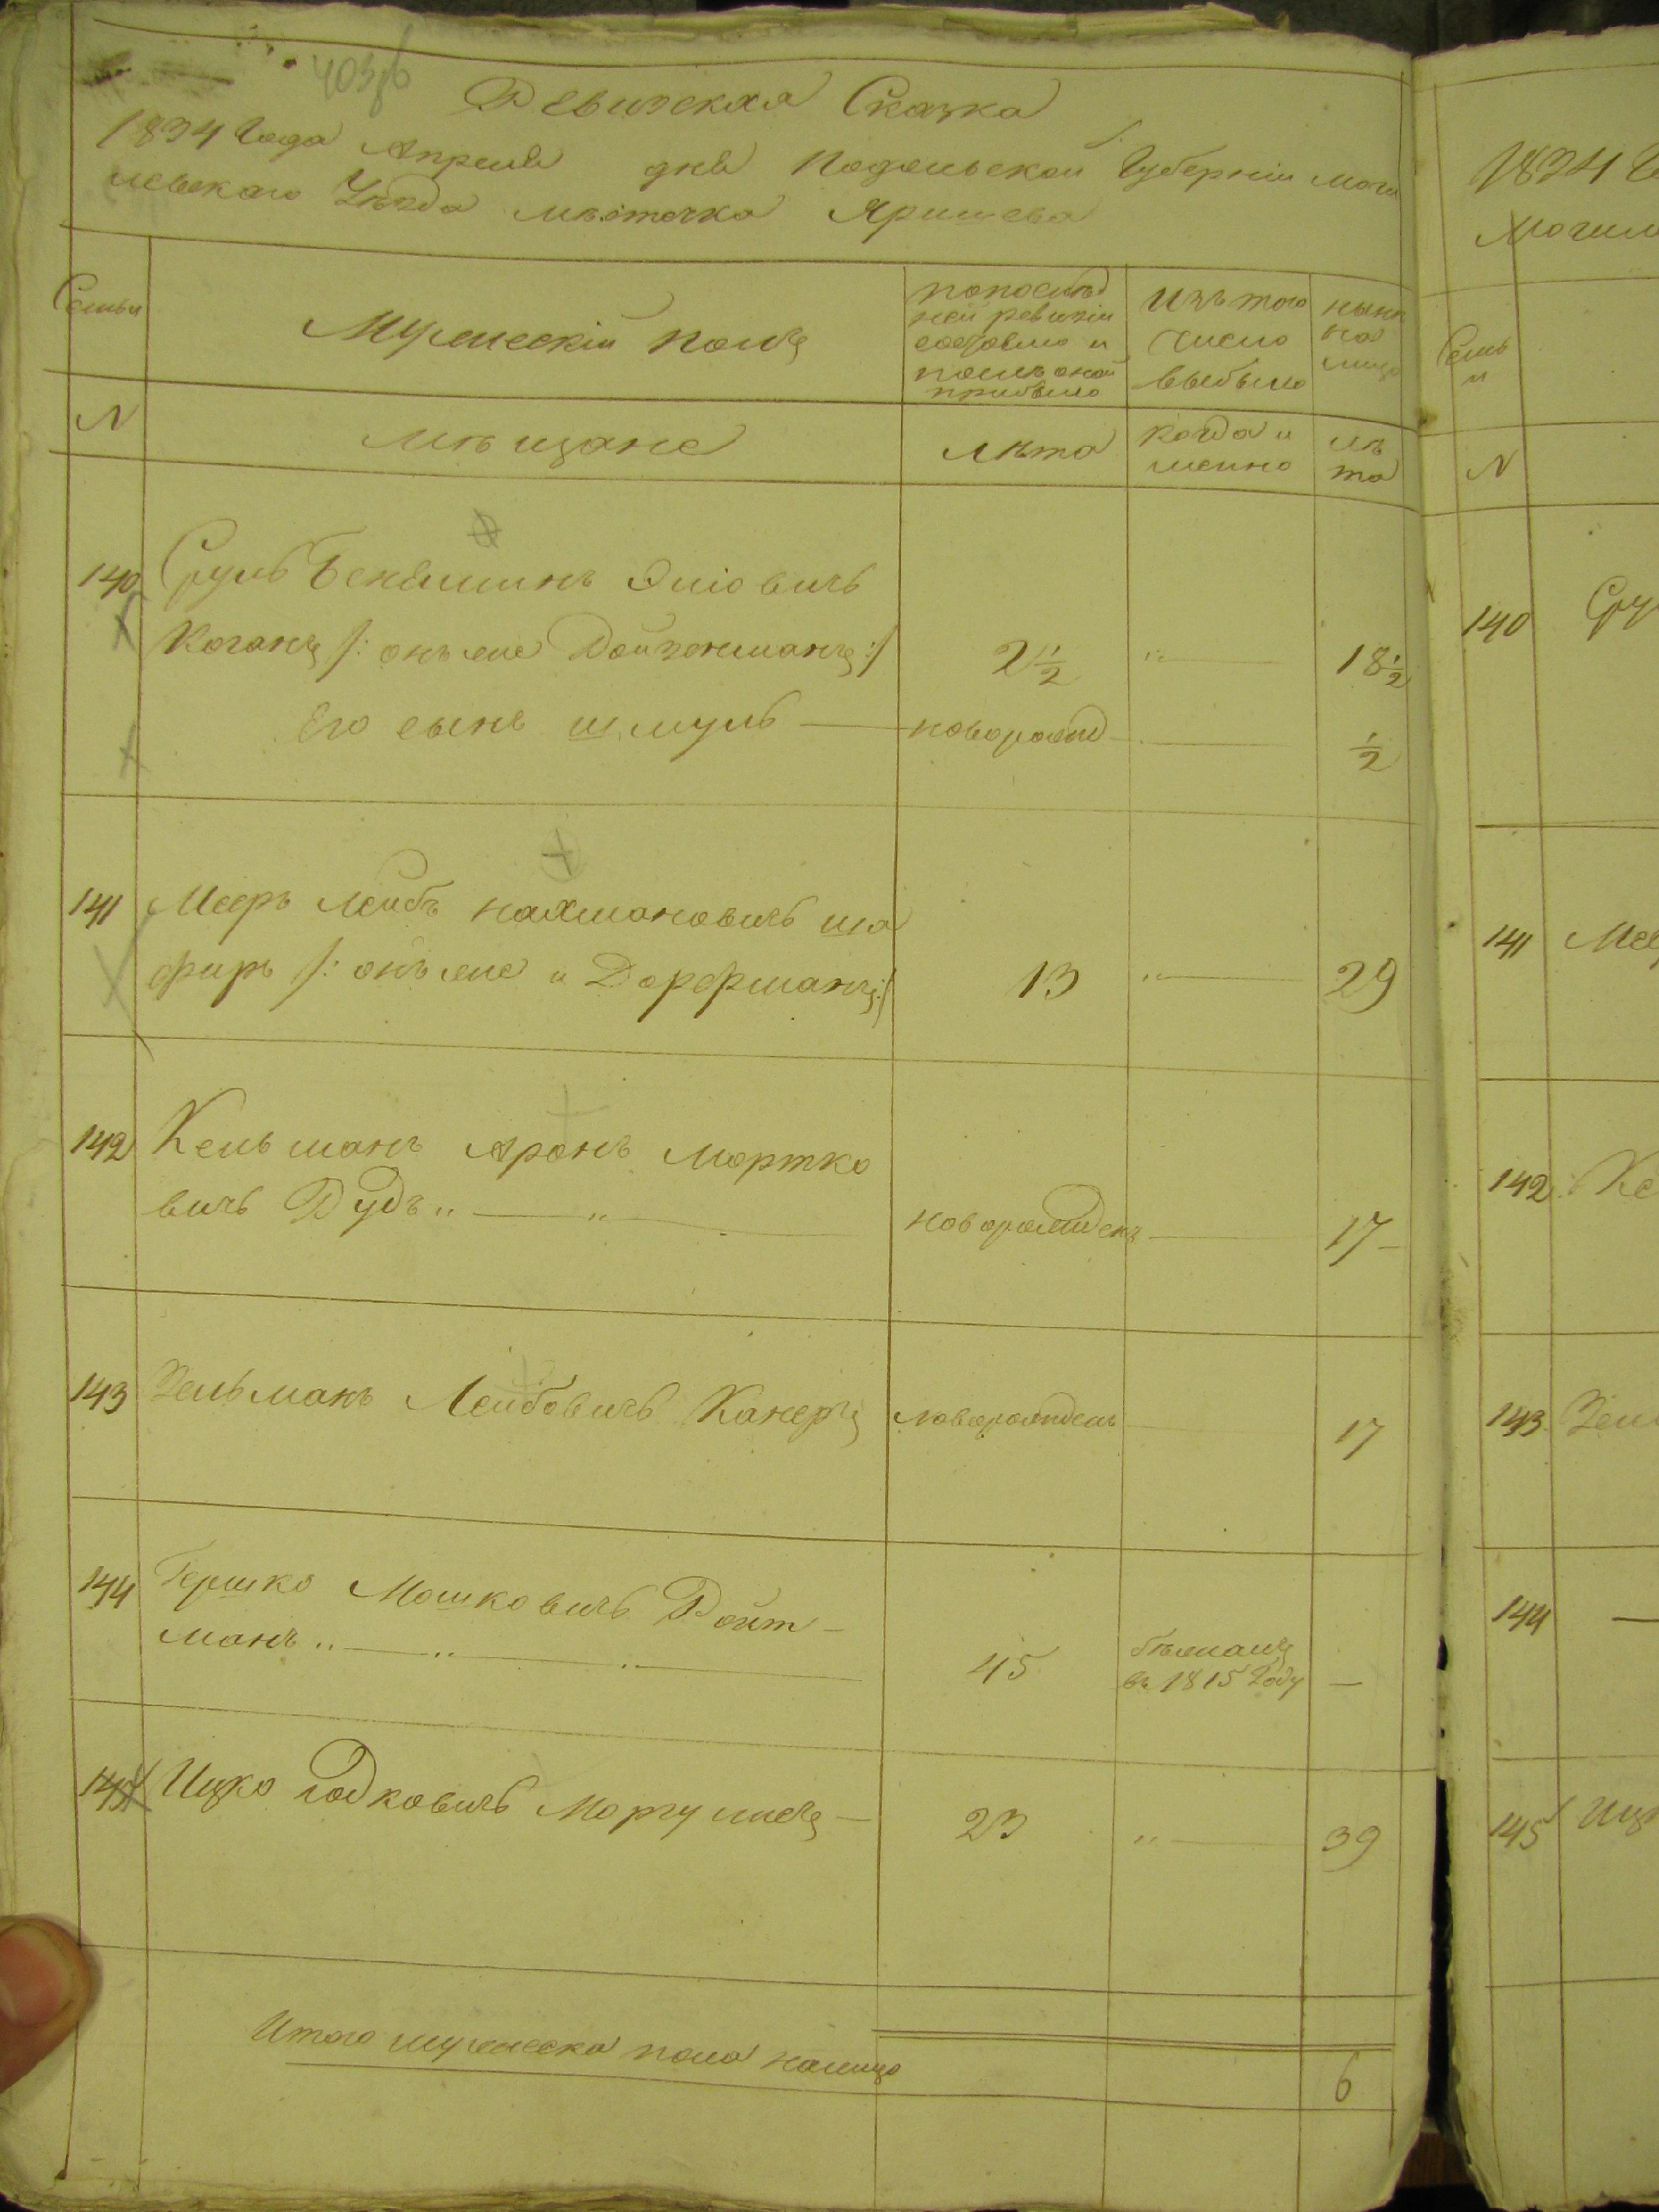 403об
Ревизская Сказка
1834 Года Апреля дня Подольской Губерніи Моги
левскаго Уѣзда мѣстечка Яришева
Семьи
Мужескій полъ
По послѣд
ней ревизіи
состояло и
послѣ оной
прибыло
Изъ того
число
выбыло
нынѣ
на
лицо
N
мѣщане
Лѣта
когда и
менно
лѣ
та
140 Сруль Беняминъ Эліовичъ
Коганъ /: онъ же Дойзенманъ :/ 2 1/2 " 18 1/2
Его сынъ Шмуль — новорожд — 1/2
141 Мееръ Лейбъ Нахмановичъ Ша
фиръ /: онъ же и Дорфманъ :/ 13 " 29
142 Кельманъ Аронъ Мортко
вичъ Дудъ " — " — новорожденъ — 17 —
143 Зельманъ Лейбовичъ Канеръ новорожденъ — 17
144 Гершко Мошковичъ Ройт —
манъ " — " — " — 45 бѣжалъ
въ 1815 Году —
145 Ицко Юдковичъ Моргулисъ — 23 " — 39
Итого мужеска пола налицо 6
1834 Го
Могил
Семь
и
N
140 Сру
141 Мее
142 Ке
143 Зель
144 —
145 Ицк